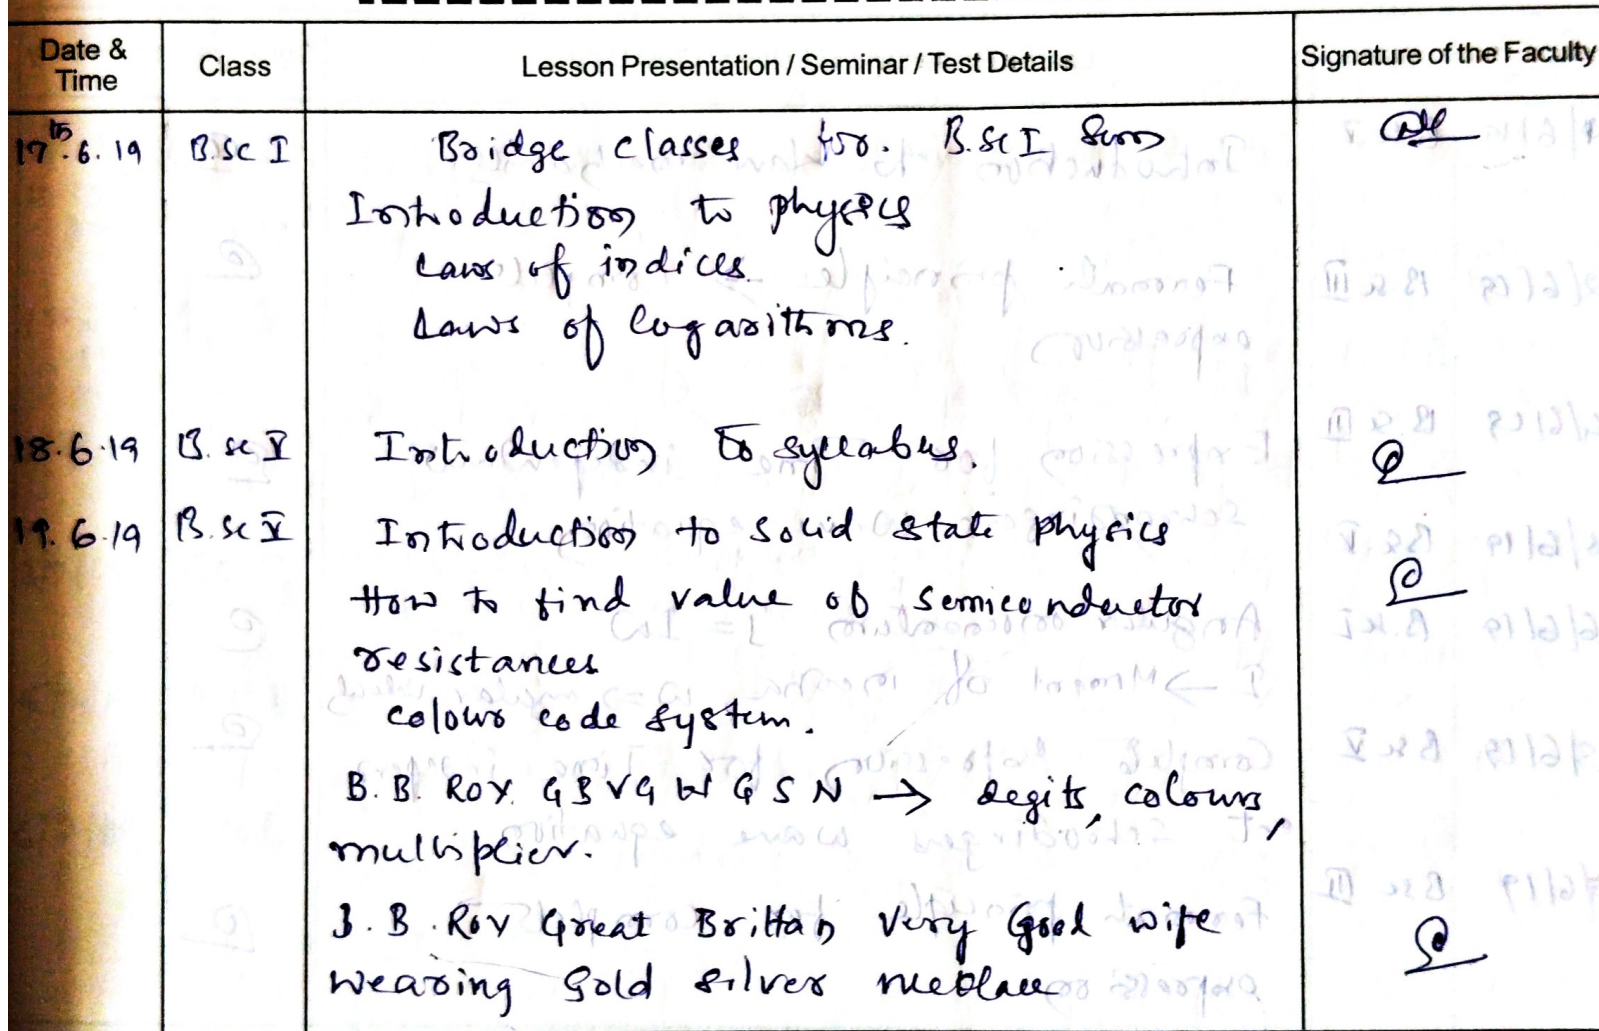 Date & Time Class Lesson Presentation / Seminar / Test Details Signature of the Faculty
17th.6.19 B.Sc I Bridge classes for. B.Sc I Sem
Introduction to physics
Laws of indices.
Laws of logarithms.
18.6.19 B.Sc V Introduction to syllabus.
19.6.19 B.Sc V Introduction to solid state physics
How to find value of semiconductor
resistances
colour code system.
B.B. ROY. G B V G W G S N → degits, colours,
multiplier.
B.B. Roy Great Brittan Very Good wife
wearing Gold silver